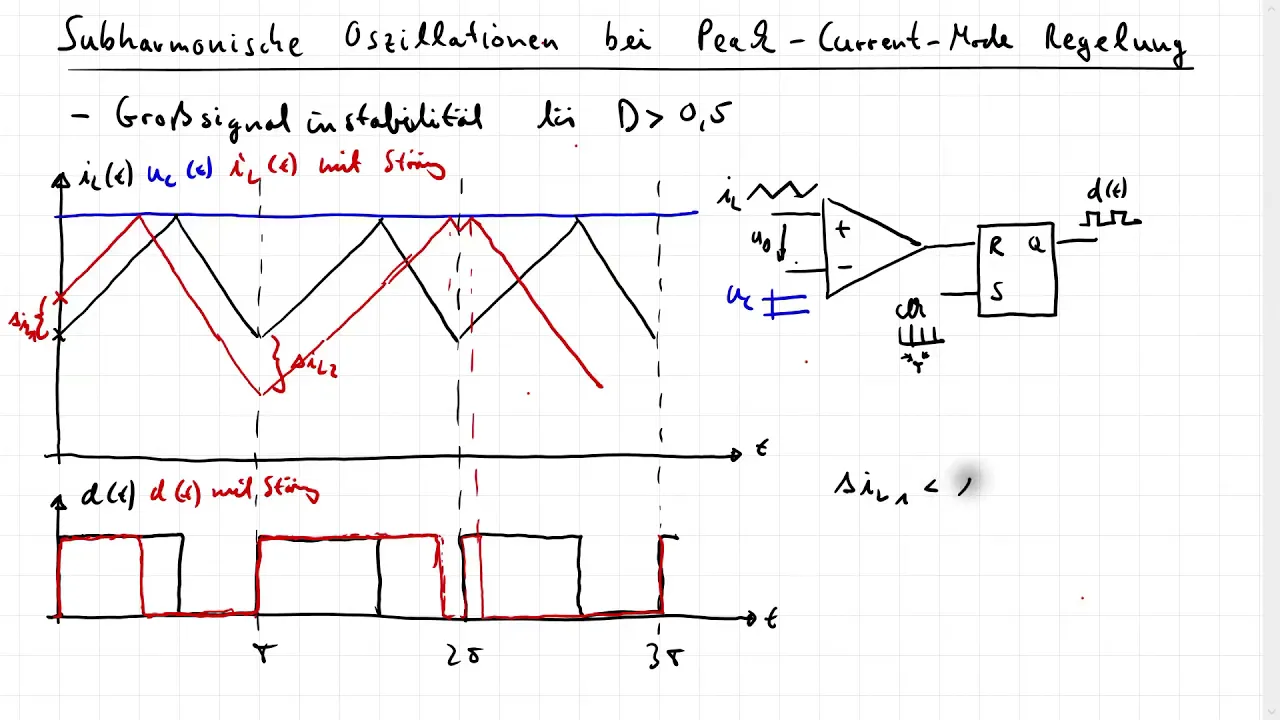 Subharmonische Oszillationen bei Peak-Current-Mode Regelung
- Großsignalinstabilität für D > 0,5
iL(t) uc(t) iL(t) mit Störung
ΔiL1
ΔiL2
t
d(t) d(t) mit Störung
t
T 2T 3T
iL
u0
uc
+
-
R Q
S
clk
T
d(t)
ΔiL1 <